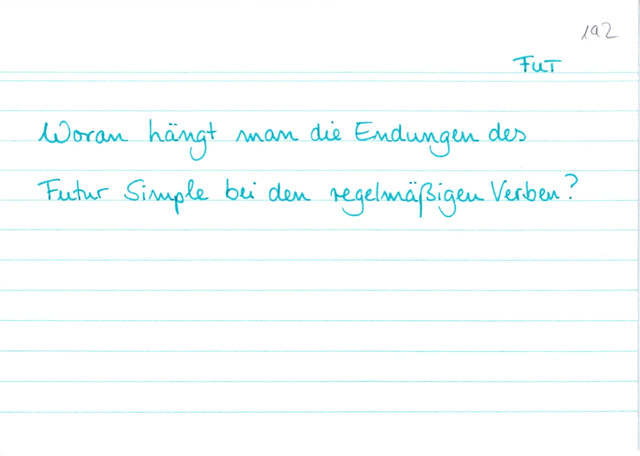 192
FUT
Woran hängt man die Endungen des
Futur Simple bei den regelmäßigen Verben?